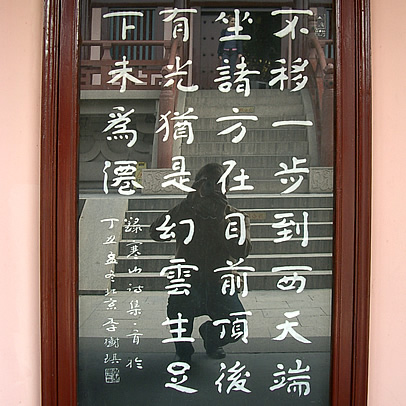 不移一步到西天端
坐諸方在目前頂後
有光猶是幻雲生足
下未為僊
錄寒山詩集
丁丑孟冬北京李國琪